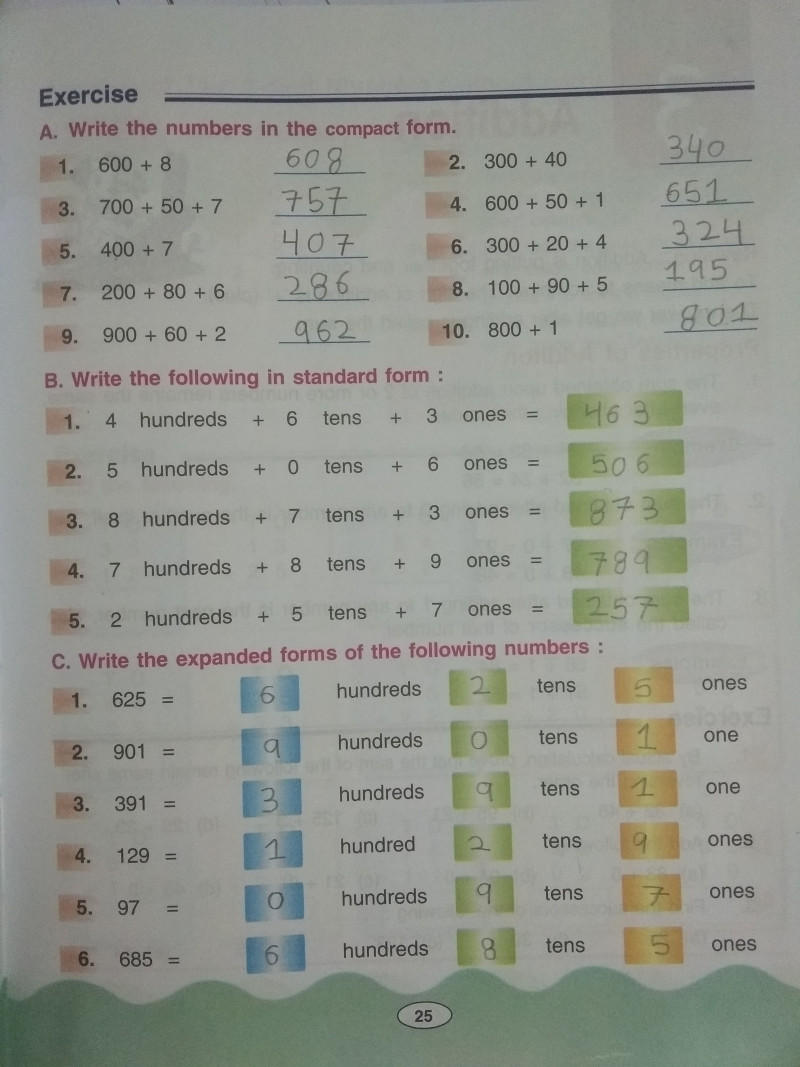 Exercise
A. Write the numbers in the compact form.
1. 600 + 8 608 2. 300 + 40 340
3. 700 + 50 + 7 757 4. 600 + 50 + 1 651
5. 400 + 7 407 6. 300 + 20 + 4 324
7. 200 + 80 + 6 286 8. 100 + 90 + 5 195
9. 900 + 60 + 2 962 10. 800 + 1 801
B. Write the following in standard form :
1. 4 hundreds + 6 tens + 3 ones = 463
2. 5 hundreds + 0 tens + 6 ones = 506
3. 8 hundreds + 7 tens + 3 ones = 873
4. 7 hundreds + 8 tens + 9 ones = 789
5. 2 hundreds + 5 tens + 7 ones = 257
C. Write the expanded forms of the following numbers :
1. 625 = 6 hundreds 2 tens 5 ones
2. 901 = 9 hundreds 0 tens 1 one
3. 391 = 3 hundreds 9 tens 1 one
4. 129 = 1 hundred 2 tens 9 ones
5. 97 = 0 hundreds 9 tens 7 ones
6. 685 = 6 hundreds 8 tens 5 ones
25